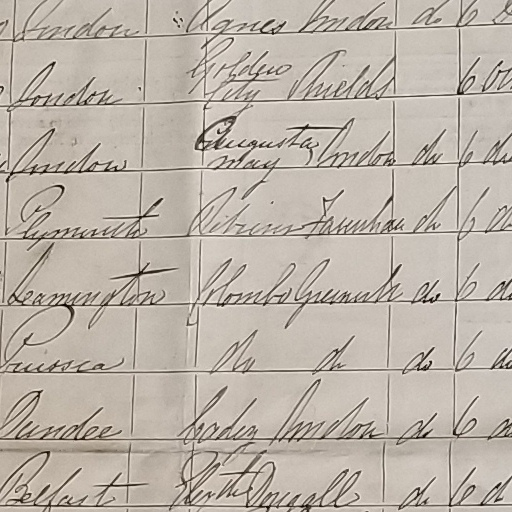 London Agnes London do 6
London Golden City Shields 6
London Augusta May London do 6 do
Plymouth do 6
Leamington Colombo Greenock do 6 do
Prussia do do do 6 do
Dundee London do 6
Belfast Dougall do 6 d